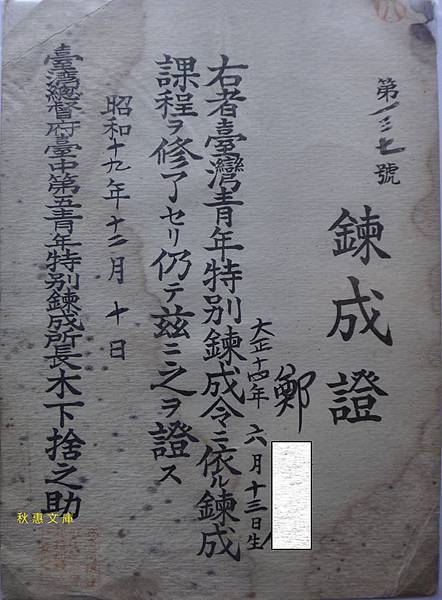 第一三七號
鍊成證
鄭
大正十四年 六月十三日生
右者臺灣青年特別鍊成令ニ依ル鍊成
課程ヲ修了セリ仍テ茲ニ之ヲ證ス
昭和十九年十二月十日
臺湾總督府臺中第五青年特別鍊成所長木下捨之助
秋惠文庫